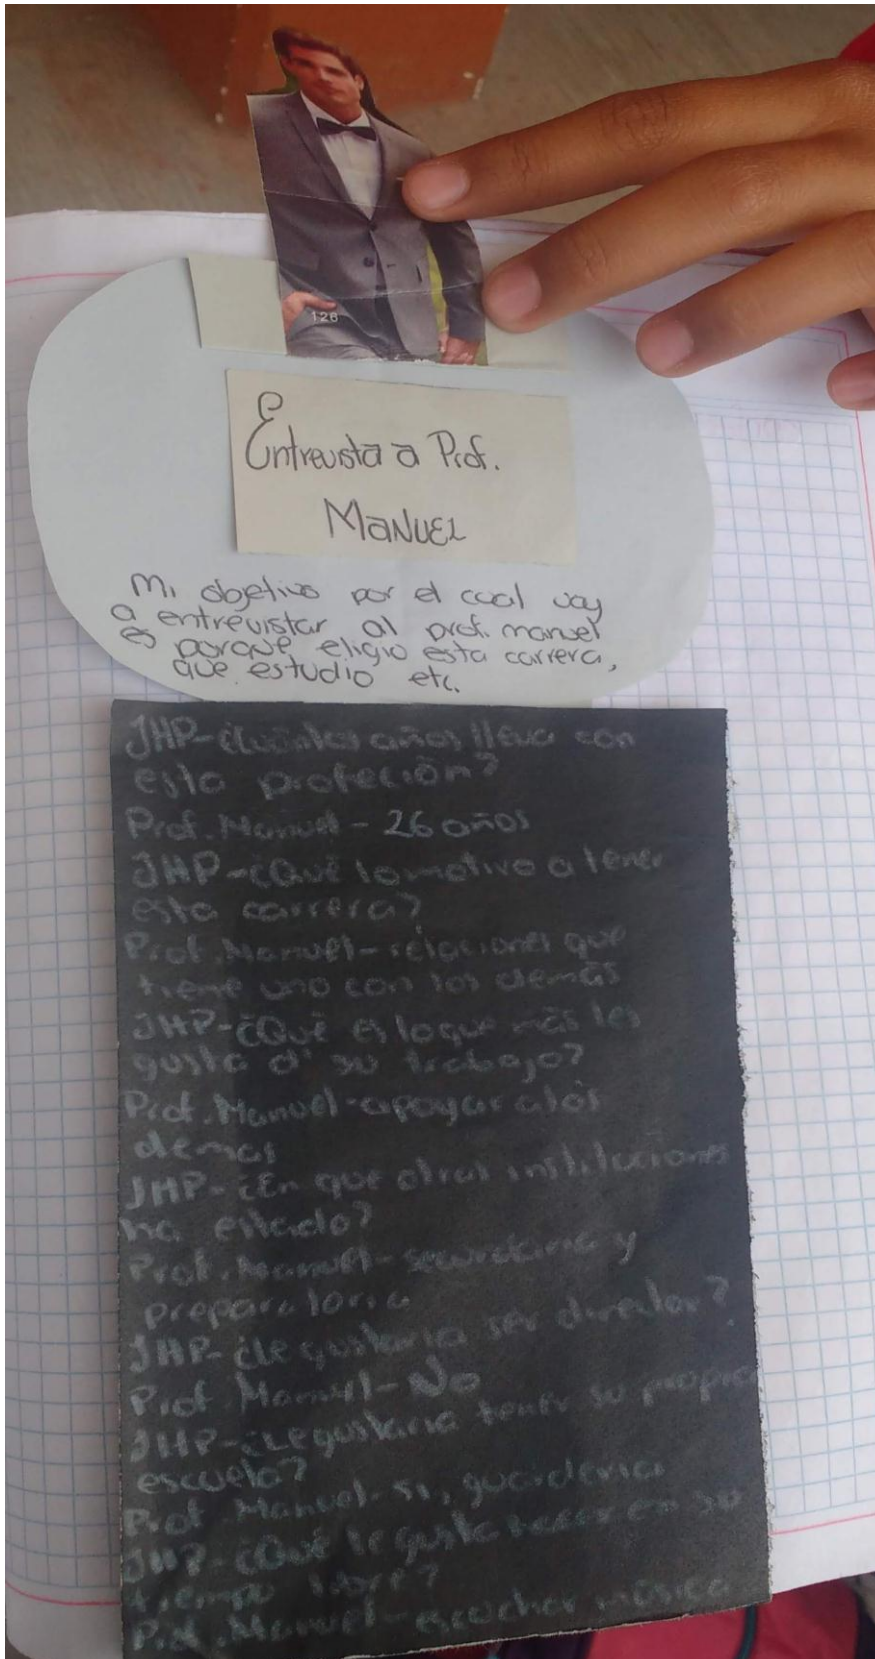 126
Entrevista a Prof.
MANUEL
Mi objetivo por el cual voy
a entrevistar al prof. manuel
es porque eligio esta carrera,
que estudio etc.
JHP-¿Cuántos años lleva con
esta profeción?
Prof. Manuel - 26 años
JHP-¿Qué lo motivo a tener
esta carrera?
Prof. Manuel-relaciones que
tiene uno con los demás
JHP-¿Qué es lo que más les
gusta d' su trabajo?
Prof. Manuel-apoyar a los
demas
JHP-¿En que otras instituciones
ha estado?
Prof. Manuel-secundaria y
preparatoria
JHP-¿le gustaria ser director?
Prof. Manuel-No
JHP-¿Le gustaria tener su propia
escuela?
Prof. Manuel-si, guarderia
JHP-¿Qué le gusta hacer en su
tiempo libre?
Prof. Manuel-escuchar música